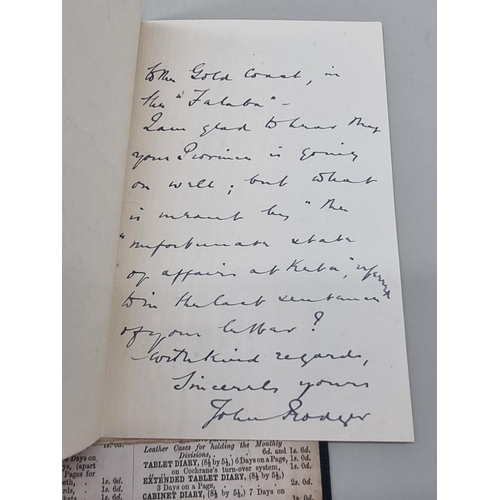 to the Gold Coast, in
the "Falaba" -
I am glad to hear that
your Province is going
on well; but what
is meant by "the
"unfortunate state
of affairs at Keta", referred
to in the last sentence
of your letter?
With kind regards,
Sincerely yours
John Rodger
Leather Cases for holding the Monthly
Divisions, .. 6d. and 1s. 0d.
TABLET DIARY, (8½ by 5½,) 6 Days on a Page,
on Cochrane's turn-over system, 1s. 0d.
EXTENDED TABLET DIARY, (8½ by 5½,)
3 Days on a Page, 2s. 0d.
CABINET DIARY, (8½ by 5½,) 7 Days on
1s. 0d.
3 Days on
ys, (apart
Pages for
1s. 0d.
1s. 0d.
1s. 0d.